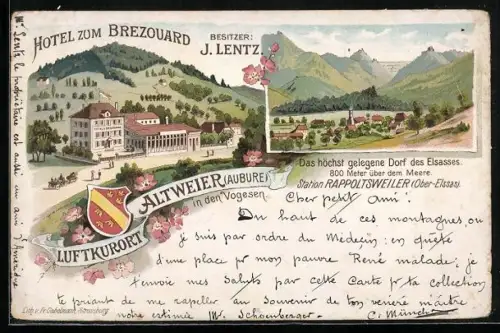 HOTEL ZUM BREZOUARD
BESITZER:
J. LENTZ.
Das höchst gelegene Dorf des Elsasses.
800 Meter über dem Meere.
Station RAPPOLTSWEILER (Ober-Elsass).
ALTWEIER (AUBURE)
in den Vogesen
LUFTKURORT
Cher petit ami!
Du haut de ces montagnes, ou
je suis par ordre du Médecin; en quête
d'une place pr mon pauvre René malade; je
t'envoie mes saluts par cette Carte pr ta collection
te priant de me rappeler au souvenir de ton vénéré maître
notre estimé Mr. Schoenberger.
Mr. Lentz le propriétaire est aussi un ami d'Amérique